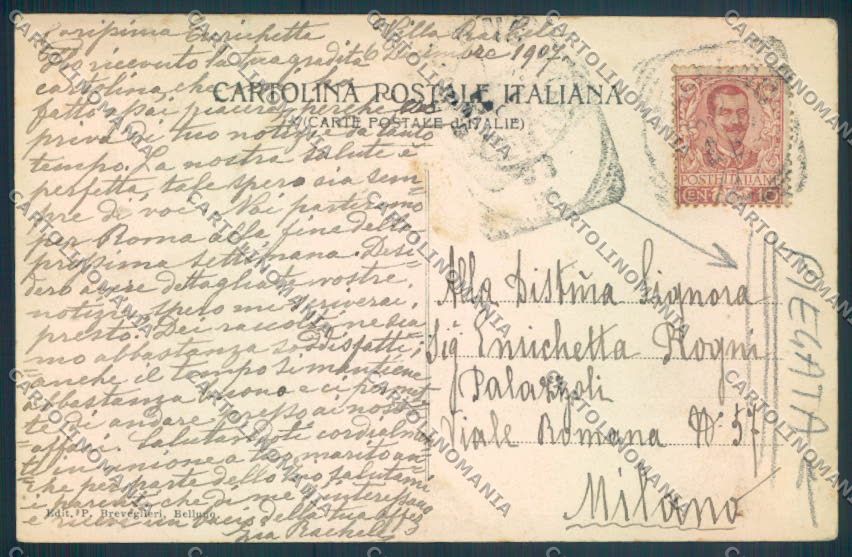 Carissima Enrichetta
Villa Rachele
6 Dicembre 1907
Ho ricevuto la tua gradita
cartolina, che mi ha
fatto assai piacere, perchè ero
priva di tuo notizie da tanto
tempo. La nostra salute è
perfetta, tale spero sia sem-
pre di voi. Noi partiremo
per Roma alla fina della
prossima settimana. Desi-
dero avere dettagliate vostre
notizie, spero mi scriverai,
presto. Dei raccolti ne sia-
mo abbastanza sodisfatti,
anche il tempo si mantiene
abbastanza buono e ci permet-
te di andare appresso ai nostri
affari. Salutandoti cordialmen-
te in unione a tuo marito an-
che per parte dello zio salutami
i parenti che di me s'interessano
e ricevi un bacio della tua aff.
Zia Rachele
CARTOLINA POSTALE ITALIANA
(CARTE POSTALE D'ITALIE)
POSTE ITALIANE
CENT. 10
Alla Distinta Signora
Sig Enrichetta Rogni
Palazzoli
Viale Romana N. 57
Milano
PIEGATA
Edit. P. Breveglieri, Belluno
CARTOLINOMANIA